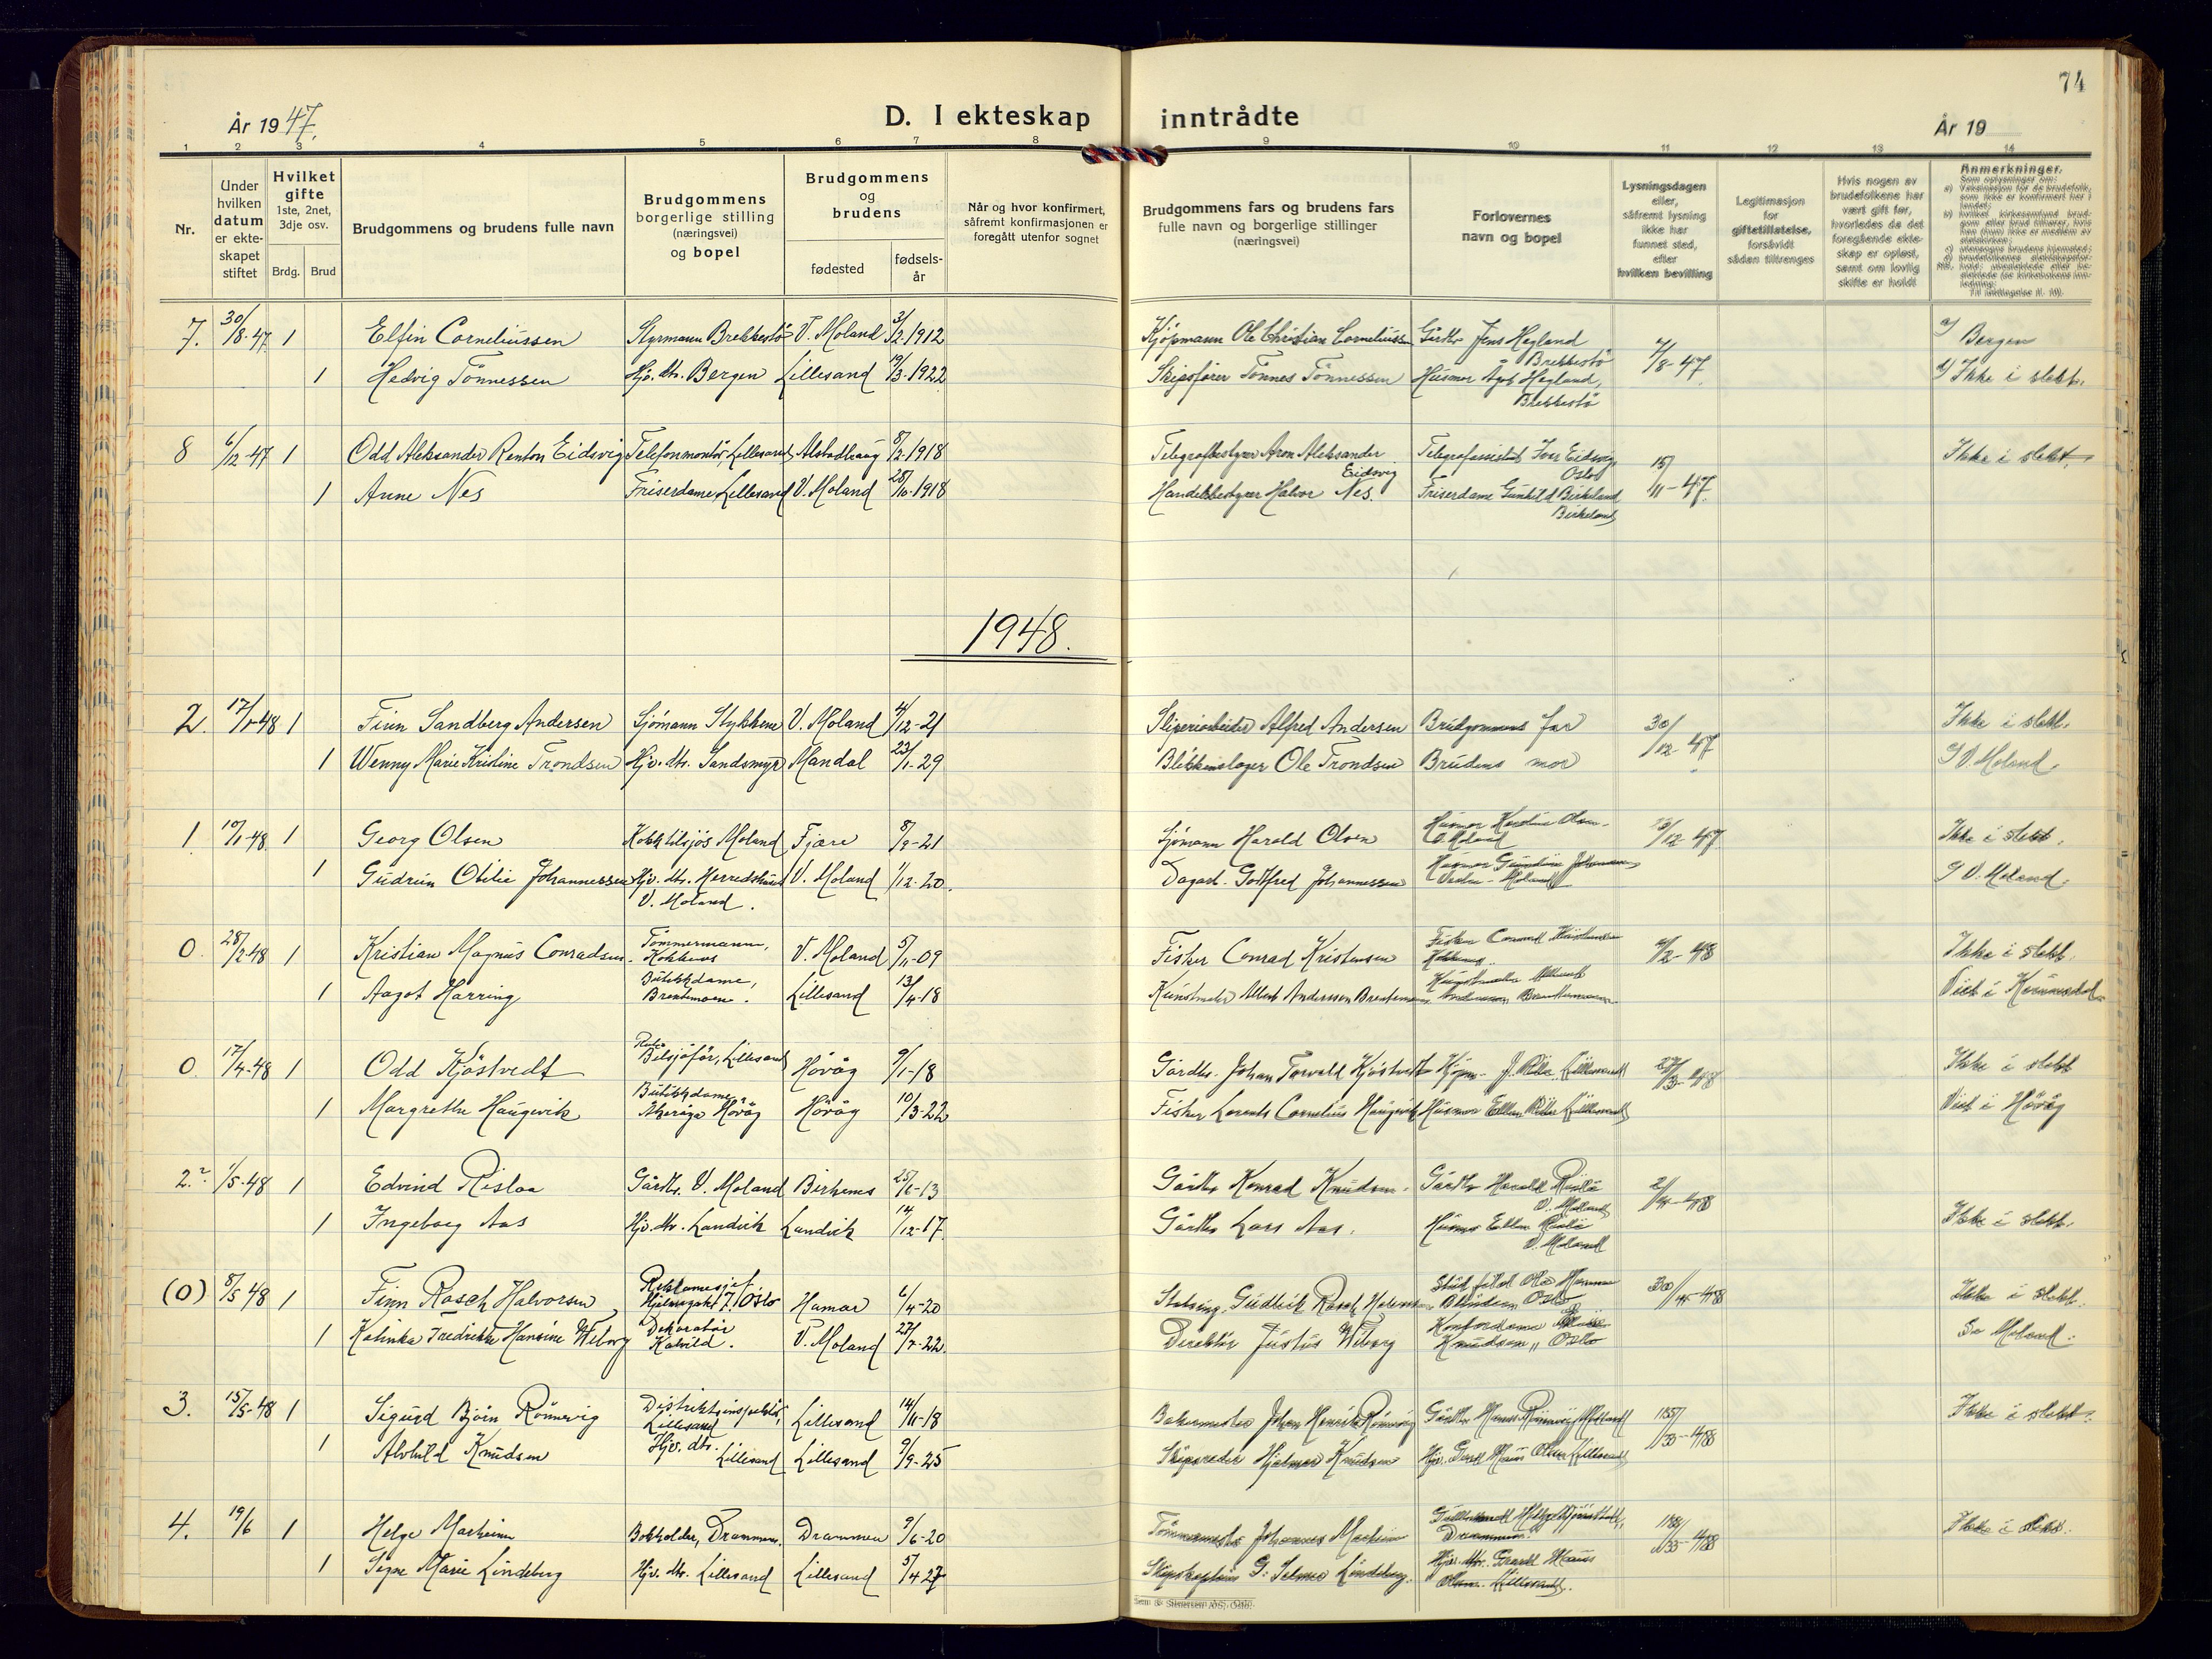 74
År 1947.
D. I ekteskap inntrådte
År 19
1 2 3 4 5 6 7 8 9 10 11 12 13 14
Nr.
Under hvilken datum er ekteskapet stiftet
Hvilket gifte 1ste, 2net, 3dje osv.
Brdg. Brud
Brudgommens og brudens fulle navn
Brudgommens borgerlige stilling (næringsvei) og bopel
Brudgommens og brudens
fødested
fødselsår
Når og hvor konfirmert, såfremt konfirmasjonen er foregått utenfor sognet
Brudgommens fars og brudens fars fulle navn og borgerlige stillinger (næringsvei)
Forlovernes navn og bopel
Lysningsdagen eller, såfremt lysning ikke har funnet sted, efter hvilken bevilling
Legitimasjon for giftetillatelse, forsåvidt sådan tiltrenges
Hvis nogen av brudefolkene har vært gift før, hvorledes da det foregående ekteskap er opløst, samt om lovlig skifte er holdt
Anmerkninger.
7. 30/8-47 1 Elfin Corneliussen Styrmann Brekkestö V. Moland 3/2.1912 Kjöpmann Ole Christian Corneliussen Gårdbr. Jens Hegland Brekkestö 7/8-47 Bergen
1 Hedvig Tönnessen Hjv. dtr. Bergen Lillesand 19/3.1922 Skipsförer Tönnes Tönnessen Husmor Hegland, Brekkestö Ikke i slekt.
8 6/12-47 1 Odd Aleksander Renton Eidsvig Telefonmontör, Lillesand Alstadhaug 8/2.1918 Telegrafbestyrer Aron Aleksander Eidsvig Telegrafassistent Ivar Eidsvig, Oslo 15/11-47 Ikke i slekt.
1 Anne Nes Friserdame Lillesand V. Moland 28/10-1918 Handelsbestyrer Halvor Nes. Friserdame Gunhild Birkeland Birkeland
1948.
2. 17/1-48 1 Finn Sandberg Andersen Sjömann Stykkene V. Moland 4/12-21 Sliperiarbeider Alfred Andersen Brudgommens far 30/12 47 Ikke i slekt.
1 Wenny Marie Kristine Trondsen Hjv. dtr. Sandsmyr Mandal 23/1-29 Blikkenslager Ole Trondsen Brudens mor V. Moland
1 10/1-48 1 Georg Olsen Kokk tilsjös Moland Fjære 8/9-21 Sjömann Harald Olsen Husmor Olsen V. Moland /12-47 Ikke i slekt.
1 Gudrun Otilie Johannessen Hjv. dtr. Herredshuset V. Moland. V. Moland 1/12-20. Dagarb. Godtfred Johannessen Husmor Johannessen Vestre-Moland V. Moland.
0 28/2-48 1 Kristian Magnus Conradsen Tömmermann, Kokkenes V. Moland 5/11-09 Fisker Conrad Kristensen Fisker Conrad Kristensen 4/2-48 Ikke i slekt.
1 Aagot Harring Butikkdame, Brentemoen. Lillesand 13/4-18 Kunstmaler Albert Andersen Brentemoen Kunstmaler Albert Andersen Brentemoen Viet i
0 17/4-48 1 Odd Kjöstvedt Rute Bilsjåför, Lillesand Hövåg 9/1-18 Gårdbr. Johan Torvald Kjöstvedt Kjöpm. J. Lillesand /3-48 Ikke i slekt
1 Margrethe Haugevik Butikkdame Åkeröya Hövåg Hövåg 10/3-22 Fisker Lorents Cornelius Haugevik Husmor Ellen Lillesand Viet i Hövåg
2.? 1/5-48 1 Edvind Rislaa Gårdbr. V. Moland Birkenes 25/6-13 Gårdbr. Konrad Knudsen. Gårdbr. Harald V. Moland 2/4-48
1 Ingeborg Aas Hjv. dtr. Landvik Landvik 14/12-17. Gårdbr. Lars Aas. Husmor Ellen V. Moland Ikke i slekt.
(0) 8/5 48 1 Finn Rasch Halvorsen Reklamesjef Hjelmsgate 7. Oslo Hamar 6/4-20 Gudleik Rasch Halvorsen Blindern Oslo 30/4-48 Ikke i slekt.
1 Katinka Fredrikke Hansine Wiborg Dekoratör V. Moland 27/7-22. Direktör Justus Wiborg Kontordame Knudsen Oslo Moland.
3. 15/5-48 1 Sigurd Björn Rönnevig Distriktsinspektör, Lillesand Lillesand 14/11-18 Bakermester Johan Henrik Rönnevig Gårdbr. Rönnevig, Moland Ikke i slekt.
1 Alvhild Knudsen Hjv. dtr. Lillesand Lillesand 9/9-25 Skipsreder Hjalmar Knudsen Hjv. Olsen Lillesand
4. 19/6 1 Helge Marheim Bokholder, Drammen. Drammen 9/6-20 Tömmermester Johannes Marheim Drammen Ikke i slekt.
1 Signe Marie Lindeberg Hjv. dtr. Lillesand Lillesand 5/4 27 Skipskaptein G. Selmer Lindeberg. Hjv. dtr. Olsen. Lillesand.